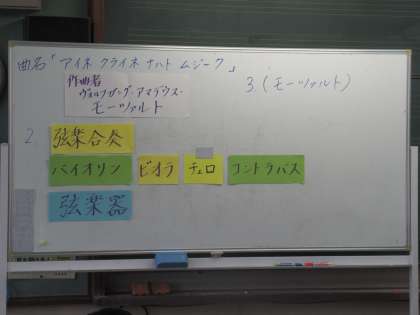 曲名「アイネ クライネ ナハト ムジーク」
作曲者
ヴォルフガング・アマデウス・
モーツァルト
3.(モーツァルト)
2.
弦楽合奏
バイオリン ビオラ チェロ コントラバス
弦楽器